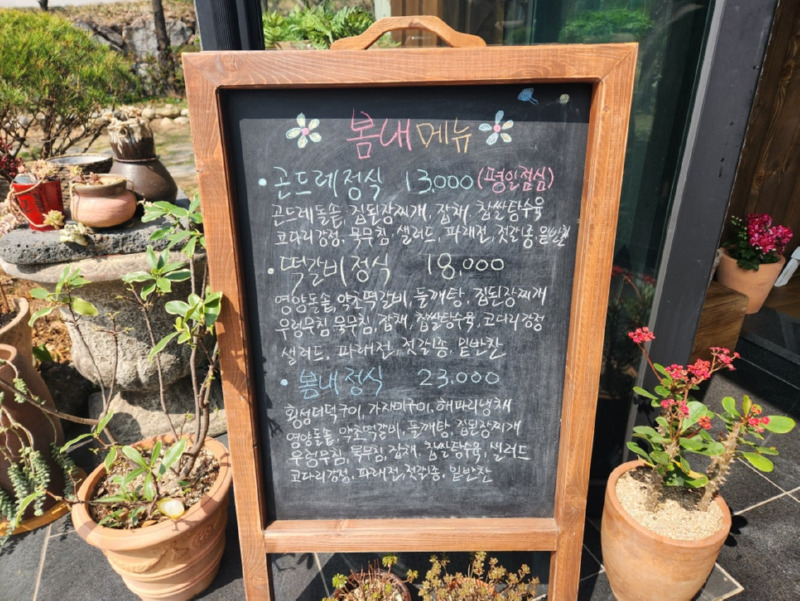 봄내 메뉴
• 곤드레정식 13,000 (평일점심)
곤드레돌솥, 집된장찌개, 잡채, 찹쌀탕수육
코다리강정, 묵무침, 샐러드, 파래전, 젓갈종, 밑반찬
• 떡갈비정식 18,000
영양돌솥, 약초떡갈비, 들깨탕, 집된장찌개
우렁무침, 묵무침, 잡채, 찹쌀탕수육, 코다리강정
샐러드, 파래전, 젓갈종, 밑반찬
• 봄내정식 23,000
횡성더덕구이, 가자미구이, 해파리냉채
영양돌솥, 약초떡갈비, 들깨탕, 집된장찌개
우렁무침, 묵무침, 잡채, 찹쌀탕수육, 샐러드
코다리강정, 파래전, 젓갈종, 밑반찬